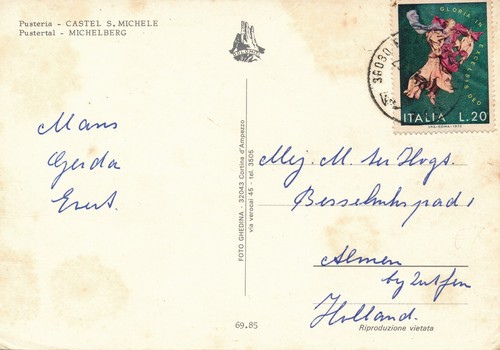 Pusteria - CASTEL S. MICHELE
Pustertal - MICHELBERG
Mans
Gerda
Evert.
FOTO GHEDINA - 32043 Cortina d'Ampezzo
via verocai 45 - tel. 3505
GLORIA IN EXCELSIS DEO
ITALIA L.20
39030
Mej. M. ter Hvgs.
Besselinkspad 1
Almen
by Zutfen
Holland.
69.85
Riproduzione vietata